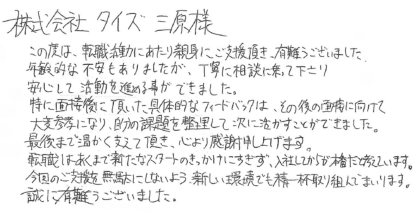 株式会社 タイズ 三原様
この度は、転職活動にあたり親身にご支援頂き、有難うございました。
年齢的な不安もありましたが、丁寧に相談に乗って下さり
安心して活動を進める事ができました。
特に面接後に頂いた具体的なフィードバックは、その後の面接に向けて
大変参考になり、自分の課題を整理して次に活かすことができました。
最後まで温かく支えて頂き、心より感謝申し上げます。
転職はあくまで新たなスタートのきっかけにすぎず、入社してからが本番だと考えています。
今回のご支援を無駄にしないよう、新しい環境でも精一杯取り組んでまいります。
誠に有難うございました。